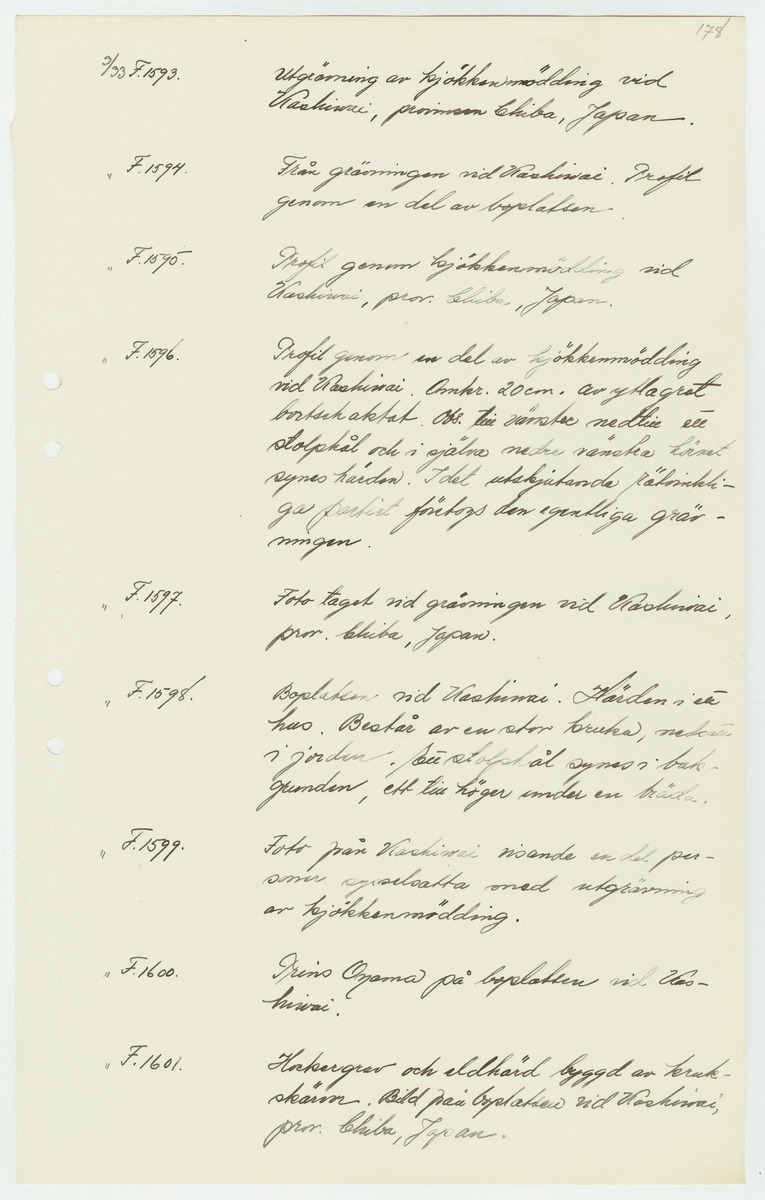 178
3/33 F.1593. Utgrävning av kjökkenmödding vid
Kashiwai, provinsen Chiba, Japan.
" F.1594. Från grävningen vid Kashiwai. Profil
genom en del av boplatsen.
" F.1595. Profil genom kjökkenmödding vid
Kashiwai, prov. Chiba, Japan.
" F.1596. Profil genom en del av kjökkenmödding
vid Kashiwai. Omkr. 20 cm. av ytlagret
bortschaktat. Obs. till vänster nedtill ett
stolphål och i själva nedre vänstra hörnet
synes härden. I det utskjutande rätvinkli-
ga partiet företogs den egentliga gräv-
ningen.
" F.1597. Foto taget vid grävningen vid Kashiwai,
prov. Chiba, Japan.
" F.1598. Boplatsen vid Kashiwai. Härden i ett
hus. Består av en stor kruka, nedsatt
i jorden. Ett stolphål synes i bak-
grunden, ett till höger under en bräda.
" F.1599. Foto från Kashiwai visande en del per-
soner sysselsatta med utgrävning
av kjökkenmödding.
" F.1600. Prins Oyama på boplatsen vid Kas-
hiwai.
" F.1601. Hockergrav och eldhärd byggd av kruk-
skärvor. Bild från boplatsen vid Kashiwai,
prov. Chiba, Japan.